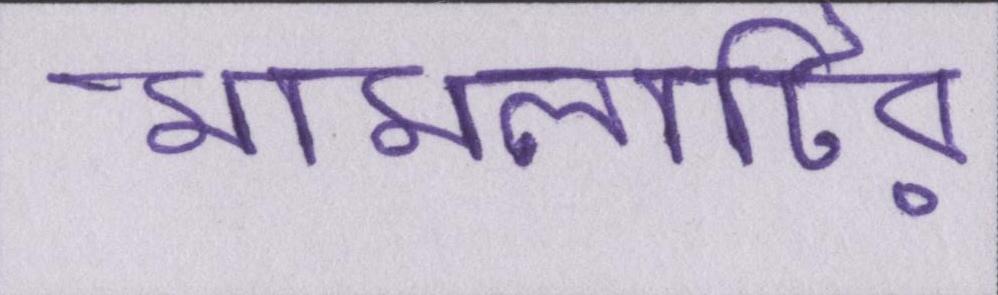 মামলাটির